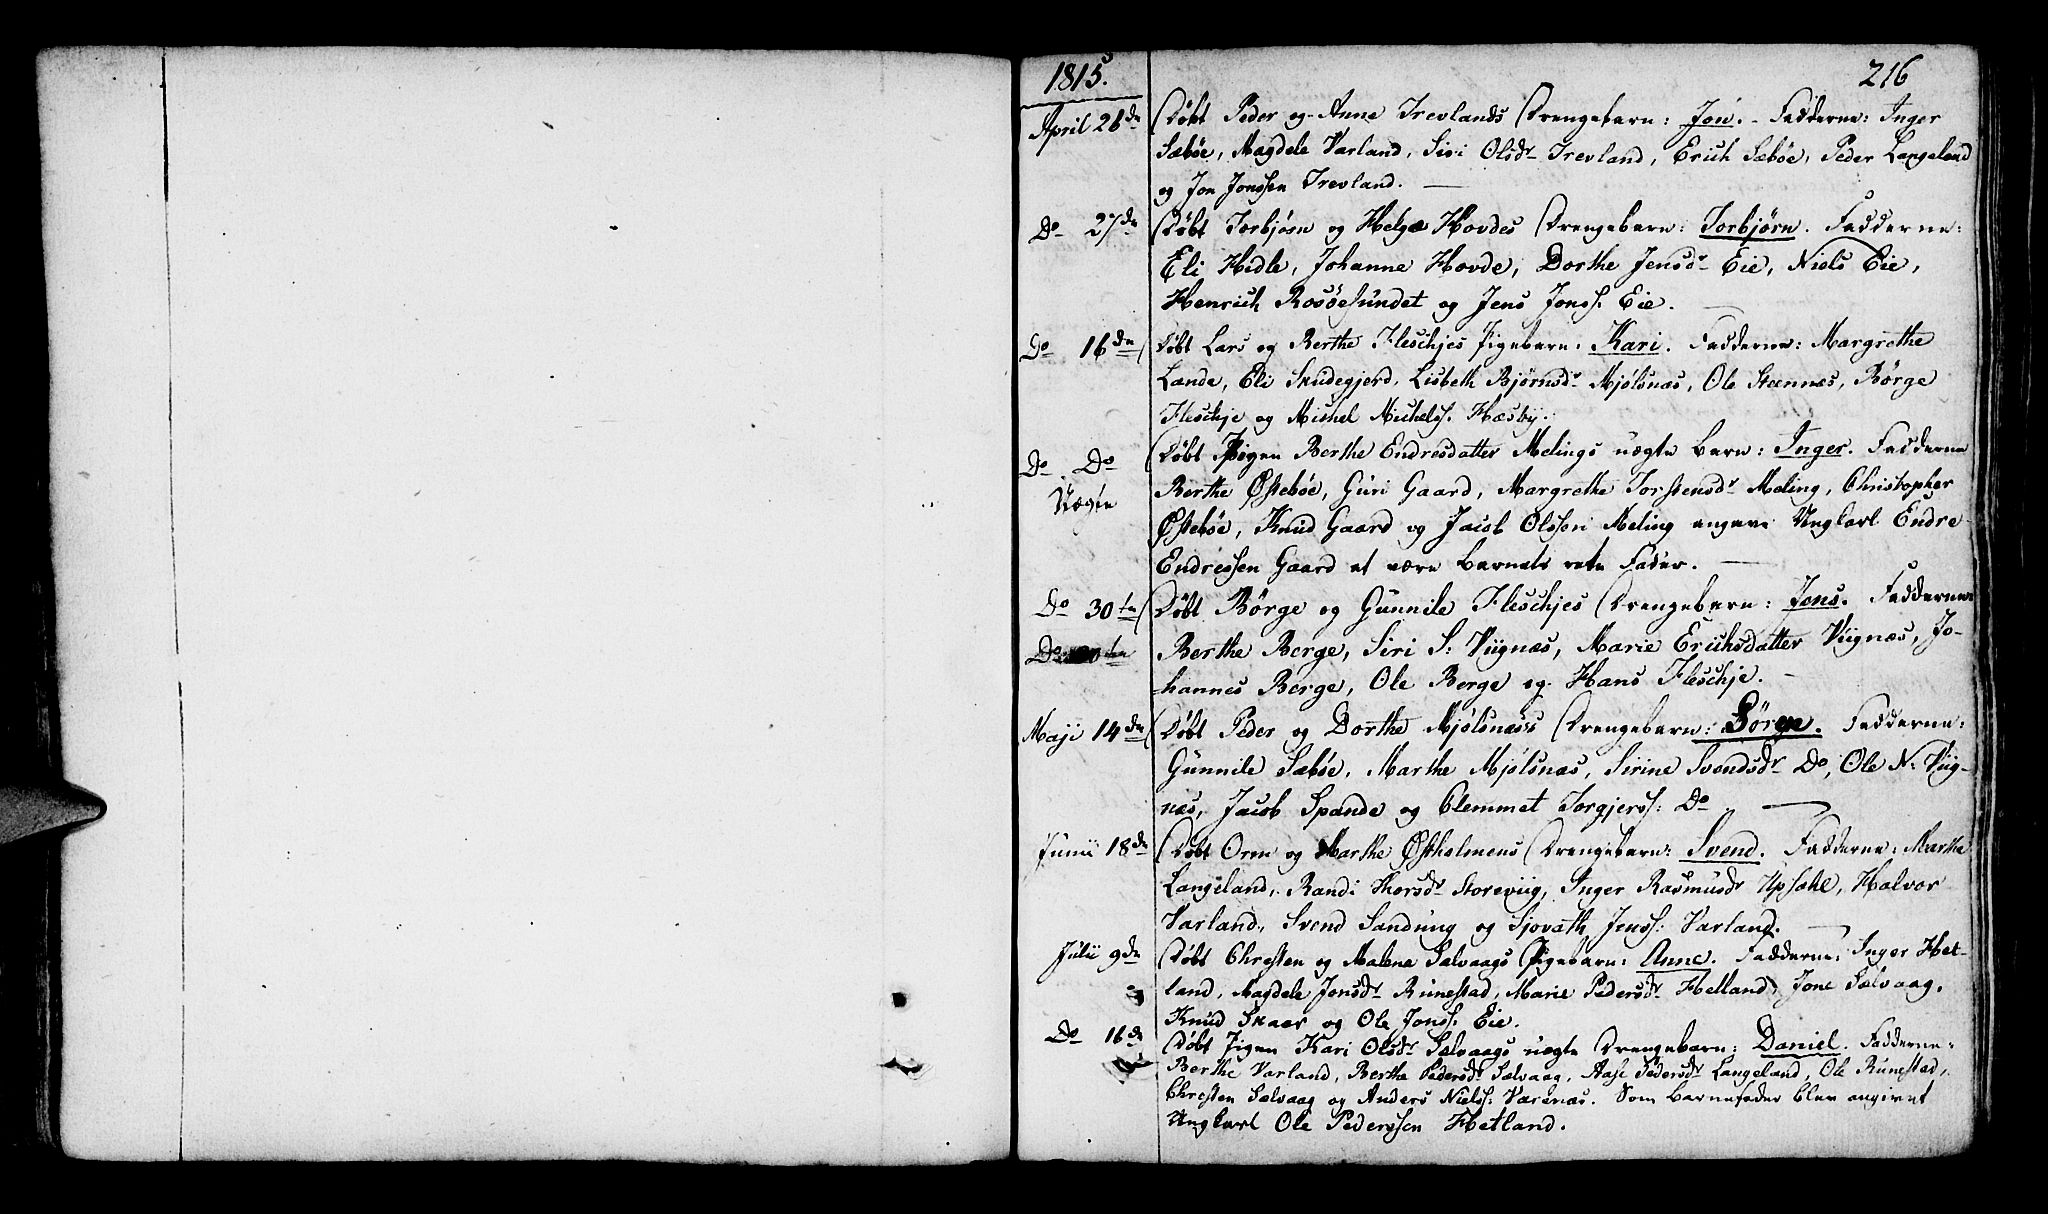 1815. 216
April 26de Døbt Peder og Anne Trevlands Drengebarn: Jon. - Fadderne: Inger
Sæbøe, Magdele Varland, Siri Olsdr Trevland, Erich Sæbøe, Peder Langeland
og Jon Jonssen Trevland.
Do 27de Døbt Torbjørn og Helge Hovdes Drengebarn: Torbjørn. Fadderne:
Eli Hidle, Johanne Hovde, Dorthe Jensdr Eie, Niels Eie,
Henrich Rosøesundet og Jens Jonss. Eie.
Do 16de Døbt Lars og Berthe Fleschjes Pigebarn: Kari. Fadderne: Margrethe
Lande, Eli Skudegjerd, Lisbeth Bjørnsdr Mjølsnæs, Ole Steennæs, Børge
Fleschje og Michel Michelss. Hæsby.
Do Do Døbt Pigen Berthe Endresdatter Melings uægte barn: Inger. Fadderne
Uægte Berthe Østebøe, Guri Gaard, Margrethe Torstensdr Meling, Christopher
Østebøe, Knud Gaard og Jacob Olssen Meling angave Ungkarl Endre
Endressen Gaard at være barnets rette Fader.
Do 30te Døbt Børge og Gunnile Fleschjes Drengebarn: Jens. Fadderne
Do Berthe Berge, Siri S: Viignæs, Marie Erichsdatter Viignæs, Jo-
hannes Berge, Ole Berge og Hans Fleschje.
Maji 14de Døbt Peder og Dorthe Mjølsnæss Drengebarn: Børge. Fadderne:
Gunnile Sæbøe, Marthe Mjølsnæs, Sirine Svendsdr Do, Ole N: Viig-
næs, Jacob Spande og Clemmet Torgjerss: Do
Junii 18de Døbt Orm og Marthe Østholmens Drengebarn: Svend. Fadderne: Marthe
Langeland, Randi Thorsdr Storeviig, Inger Rasmusdr Opsahl, Halvor
Varland, Svend Sandung og Sjovath Jenss: Varland.
Julii 9de Døbt Chresten og Malene Sælvaags Pigebarn: Anne. Fadderne: Inger Het-
land, Magdele Jonsdr Runestad, Marie Pedersdr Hetland, Jone Sælvaag,
Knud Skaar og Ole Jonss: Eie.
Do 16de Døbt Pigen Kari Olsdr Sælvaags uægte Drengebarn: Daniel. Fadderne:
Berthe Varland, Berthe Pedersdr Sælvaag, Aase Pedersdr Langeland, Ole Runestad,
Chresten Sælvaag og Anders Nielss: Varenæs. Som barnefader blev angivet
Ungkarl Ole Pederssen Hetland.